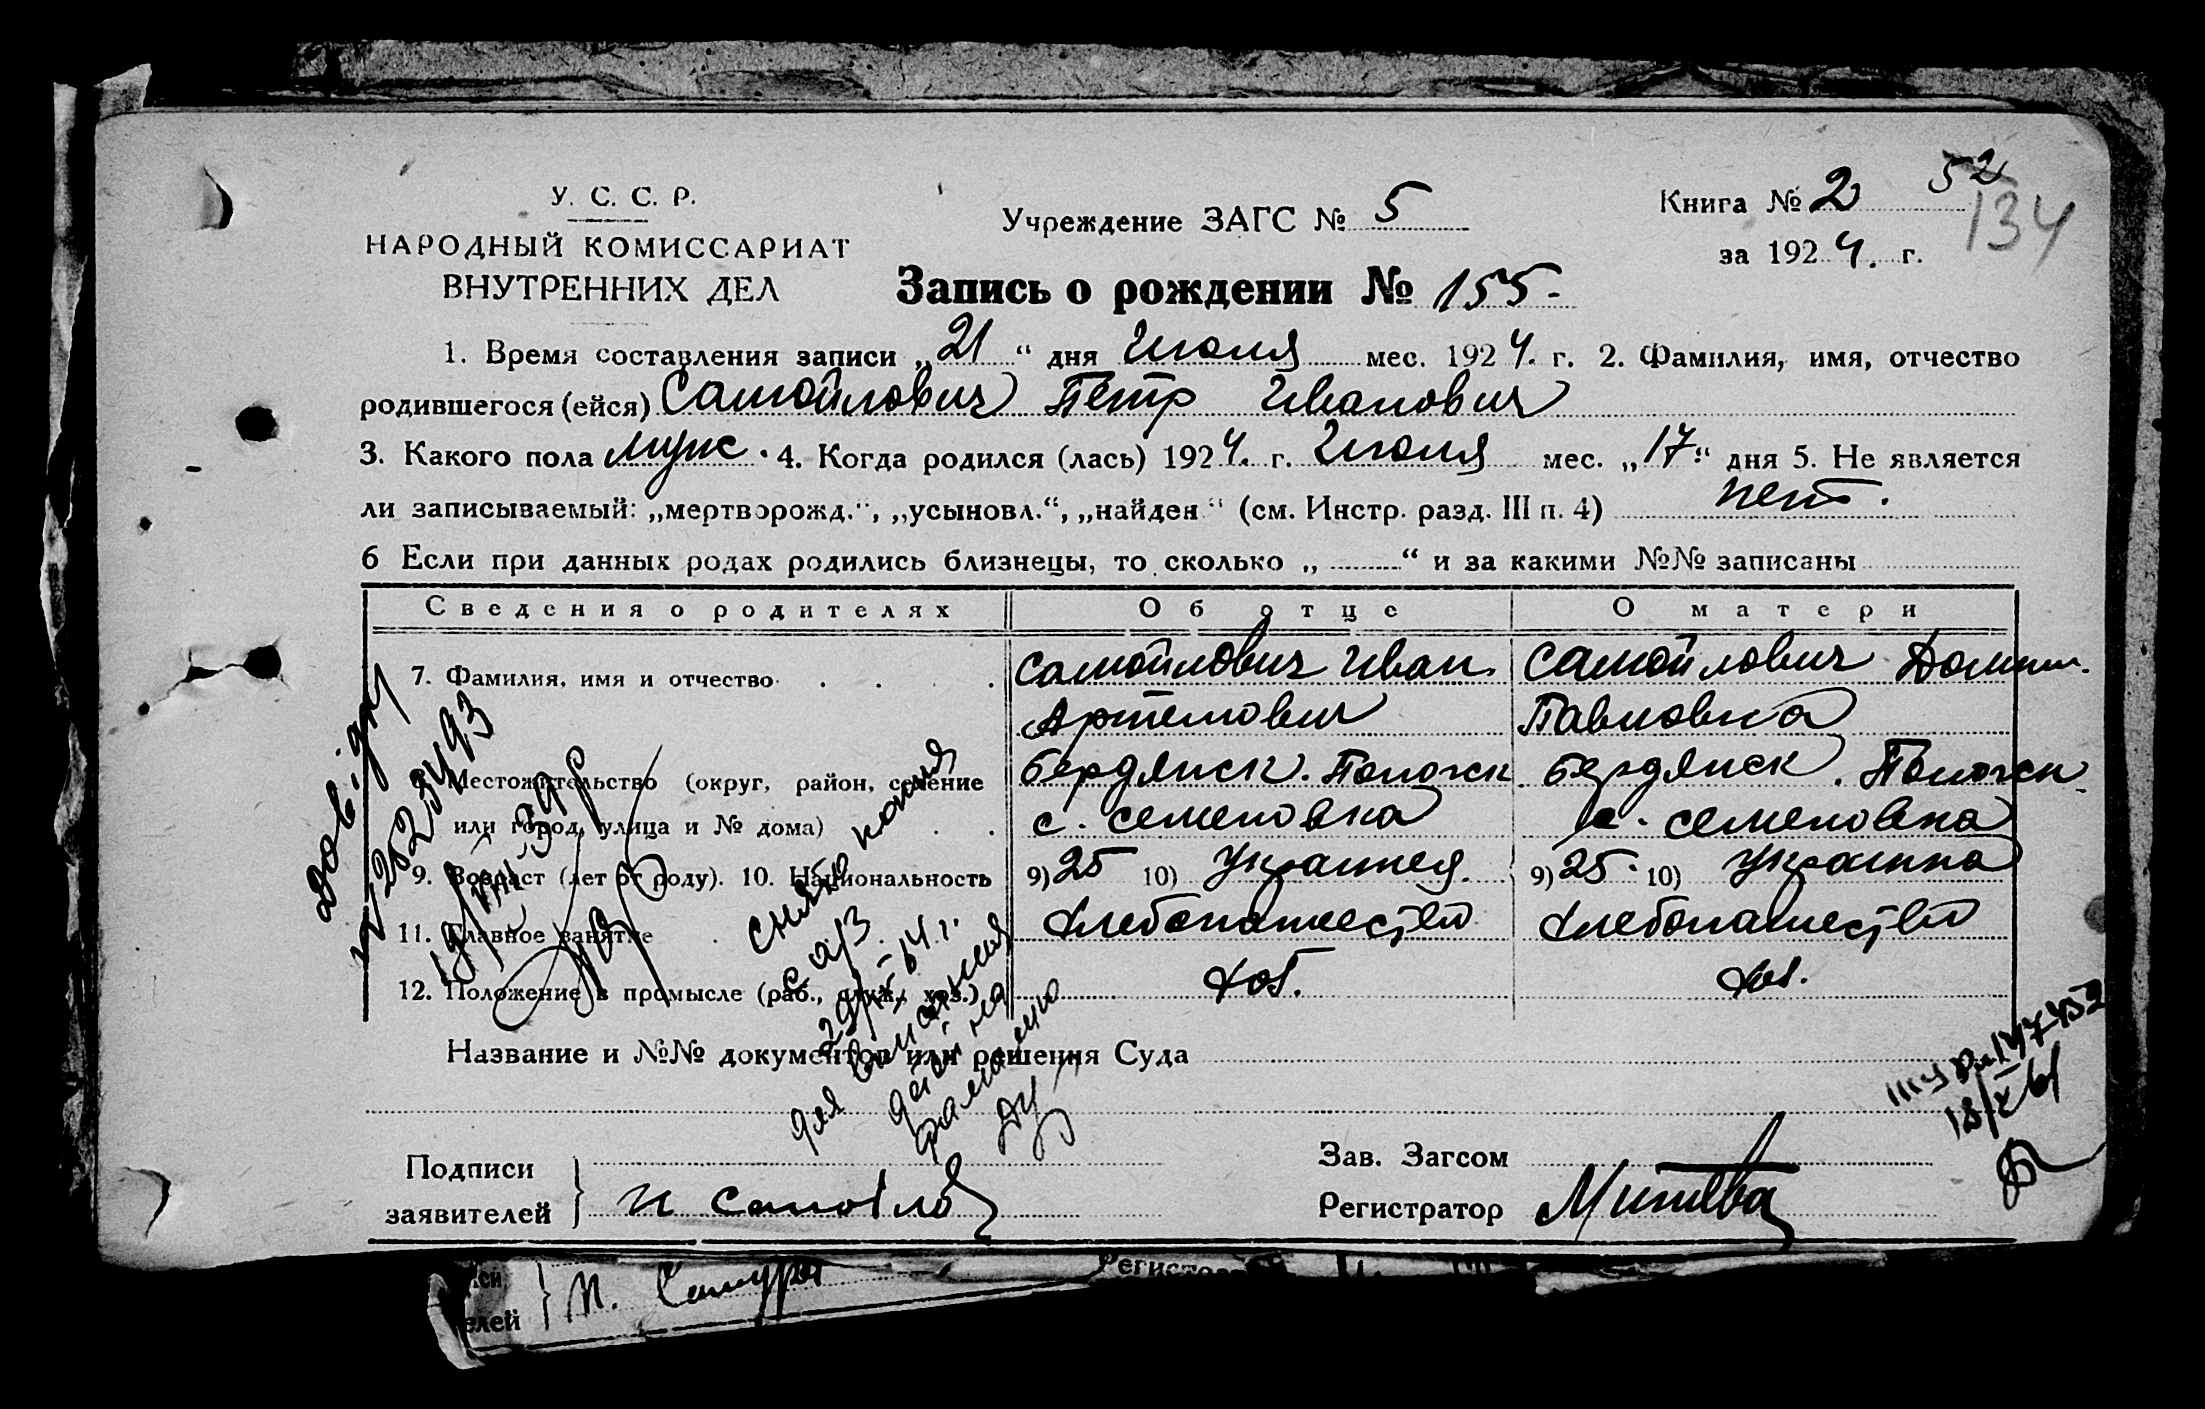 У. С. С. Р.
НАРОДНЫЙ КОМИССАРИАТ
ВНУТРЕННИХ ДЕЛ
Учреждение ЗАГС № 5
Книга № 2
52
134
за 1924. г.
Запись о рождении № 155-
1. Время составления записи „21“ дня Июля мес. 1924. г. 2. Фамилия, имя, отчество
родившегося (ейся) Самойлович Петр Иванович
3. Какого пола муж. 4. Когда родился (лась) 1924. г. Июля мес. „17“ дня 5. Не является
ли записываемый: „мертворожд.“, „усыновл.“, „найден“ (см. Инстр. разд. III п. 4) нет.
6 Если при данных родах родились близнецы, то сколько „ “ и за какими №№ записаны
Сведения о родителях Об отце О матери
7. Фамилия, имя и отчество Самойлович Иван Самойлович Домн.
Артемович Павловна
8. Местожительство (округ, район, селение Бердянск. Пологск. Бердянск. Пологск.
или город, улица и № дома) с. Семеновка с. Семеновка
9. Возраст (лет от роду). 10. Национальность 9) 25 10) Украинец 9) 25. 10) Украинка
11. Главное занятие Хлебопашество Хлебопашество
12. Положение в промысле (раб., служ., хоз.) хоз. хоз.
Название и №№ документов или решения Суда
Подписи
заявителей
И Самойло
Зав. Загсом
Регистратор
Довідку
снята копия
для
на
фамилию
18/X 61
елей